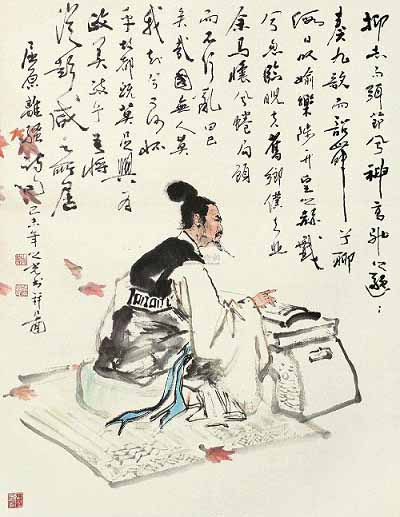 抑志而弭節兮神高馳之邈〻
奏九歌而舞韶兮聊
假日以媮樂陟升皇之赫戲
兮忽臨睨夫舊鄉僕夫悲
余馬懷兮蜷局顧
而不行亂曰已
矣哉國無人莫
我知兮又何懷
乎故都既莫足與為
美政兮吾將
從彭咸之所居
屈原離騷詩句